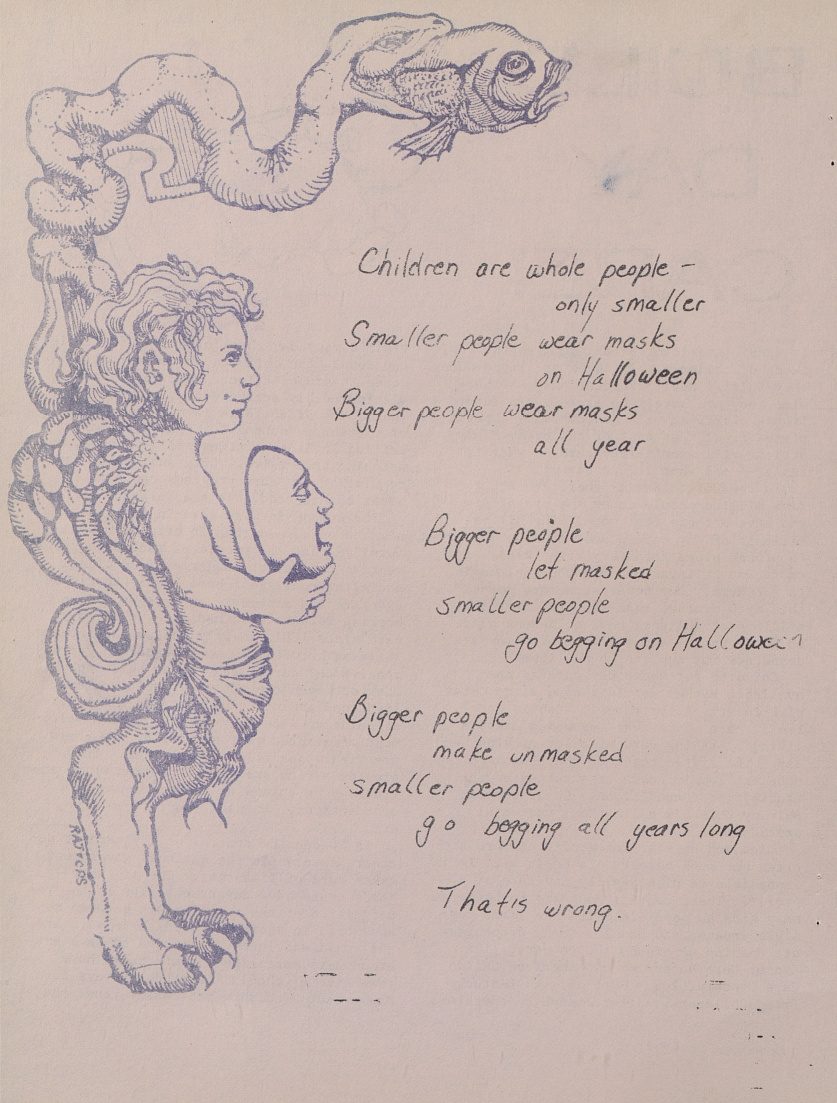 Children are whole people –
only smaller
Smaller people wear masks
on Halloween
Bigger people wear masks
all year
Bigger people
let masked
smaller people
go begging on Halloween
Bigger people
make unmasked
smaller people
go begging all years long
That's wrong.